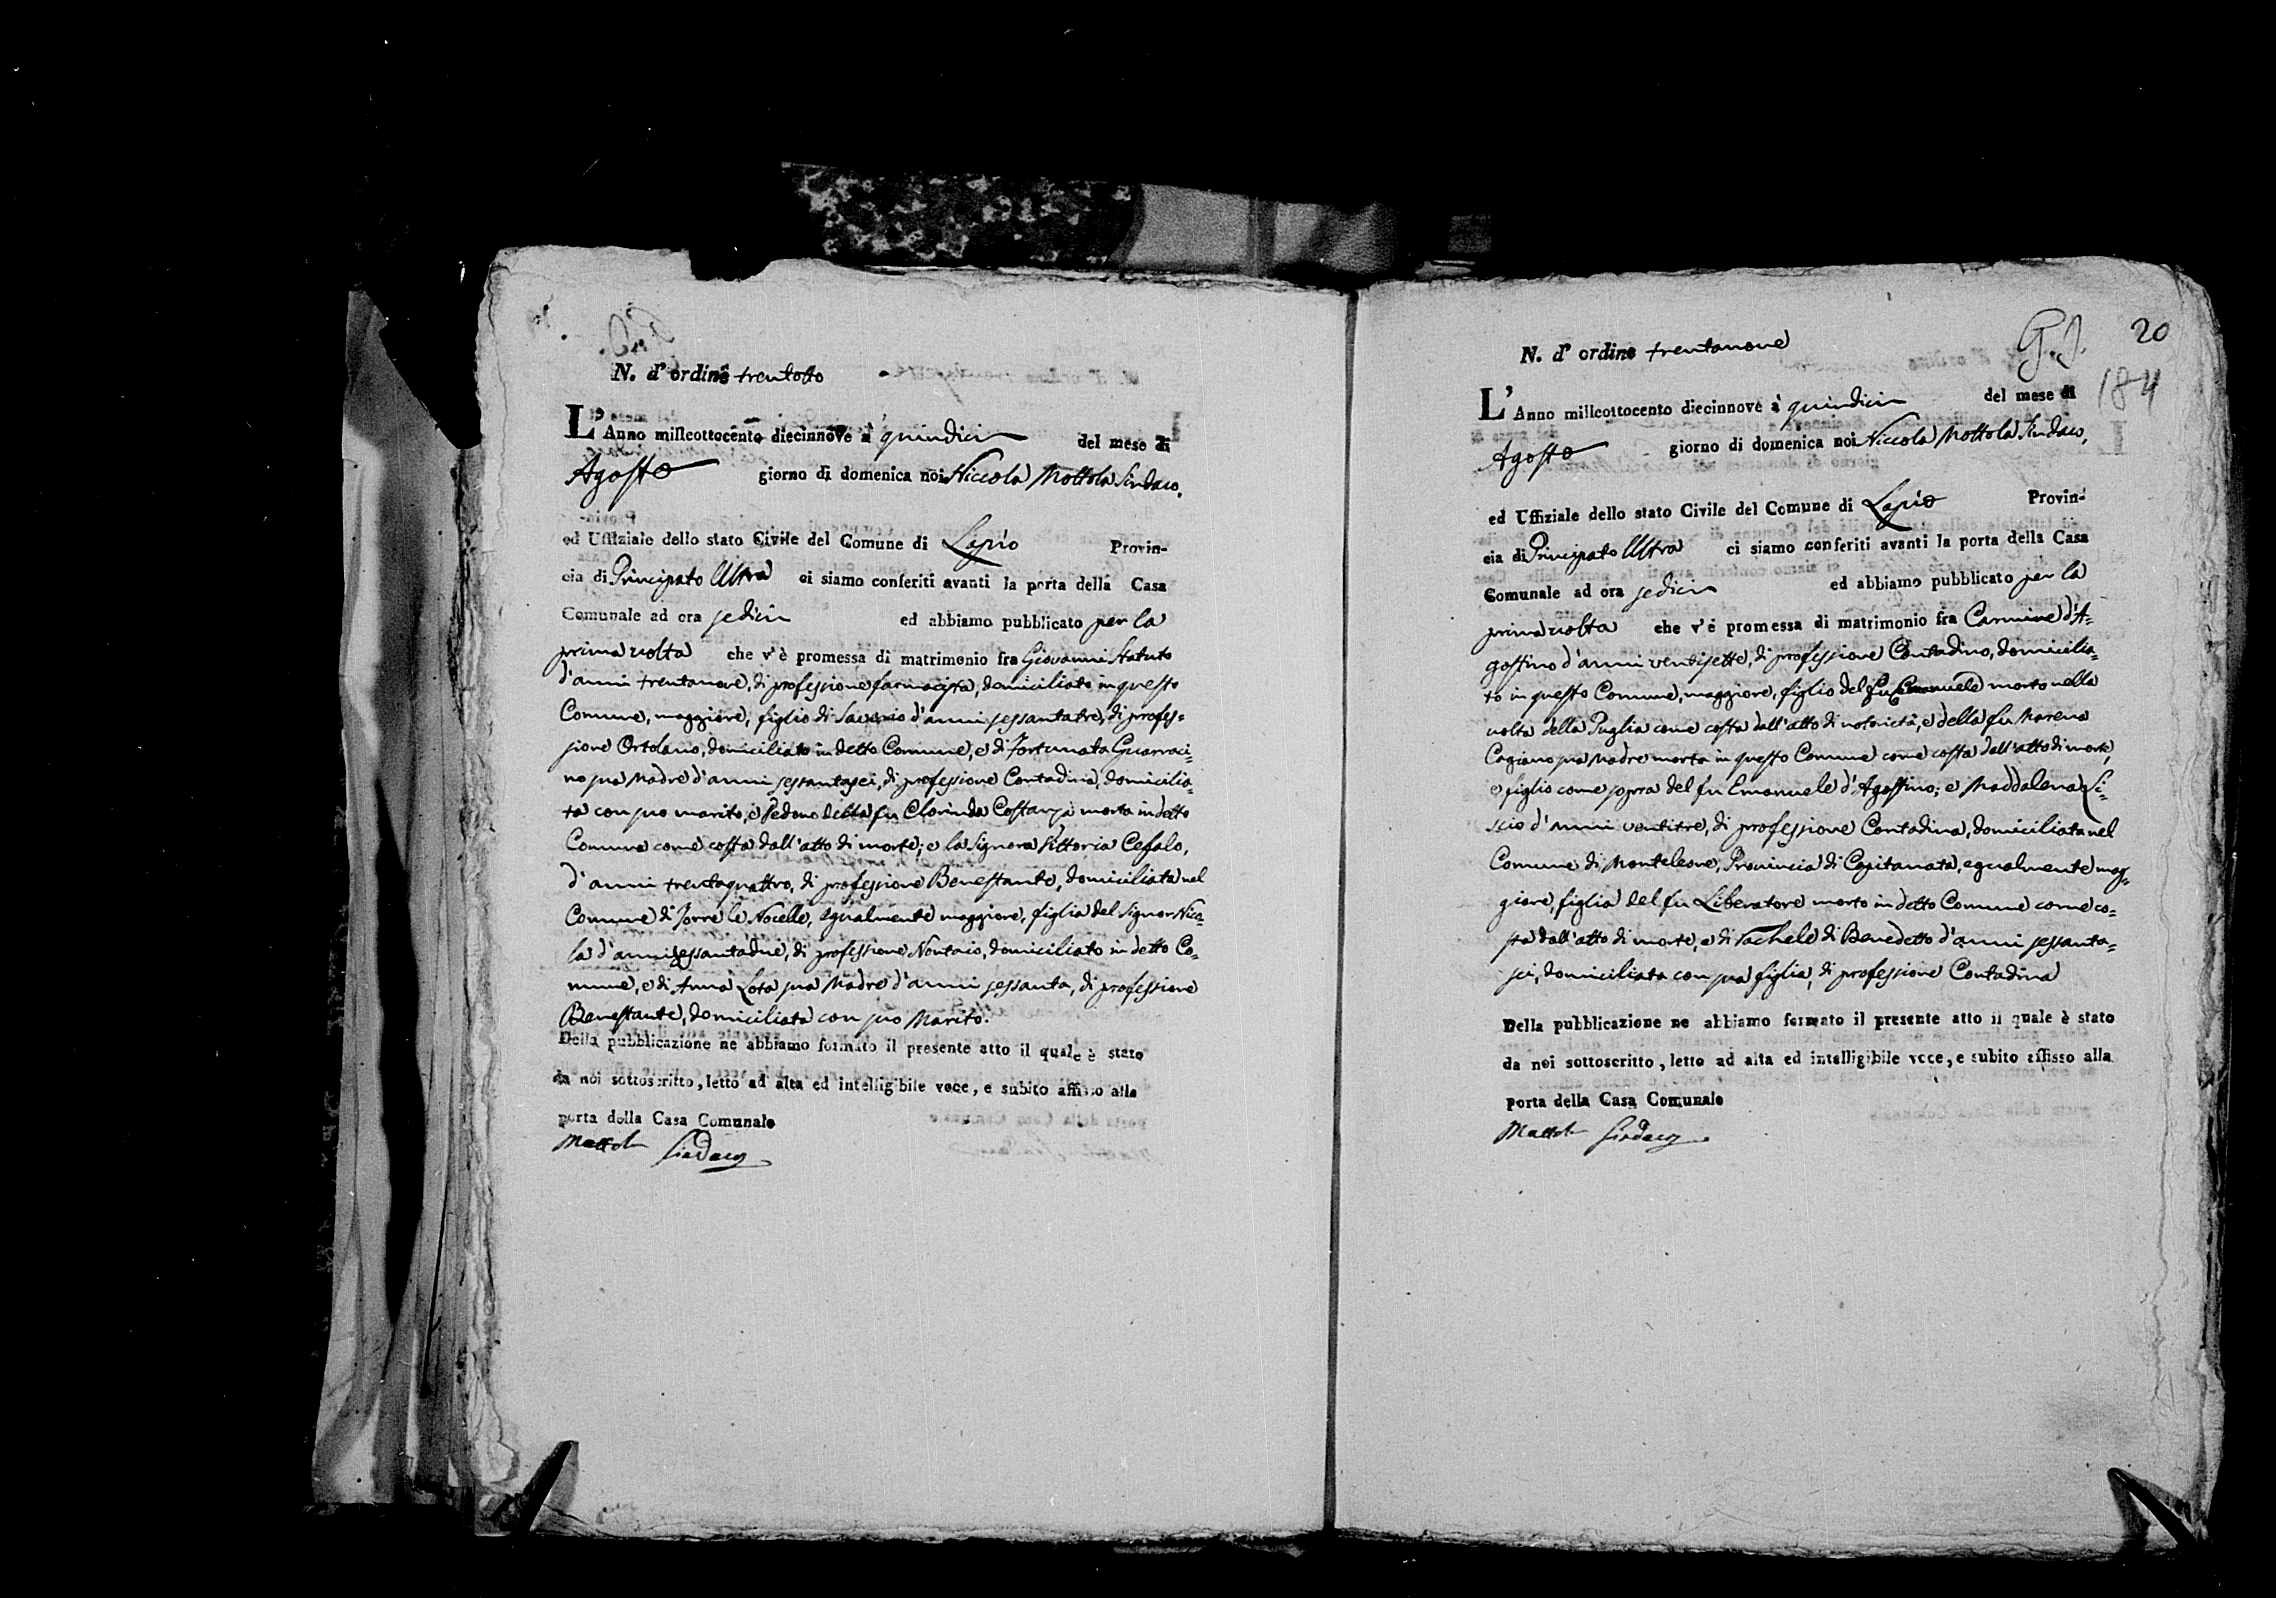 N. d'ordine trentotto
L'Anno milleottocento diecinnove a' quindici del mese di
Agosto giorno di domenica noi Niccola Mottola Sindaco,
ed Uffiziale dello stato Civile del Comune di Lapio Provin-
cia di Principato Ultra ci siamo conferiti avanti la porta della Casa
Comunale ad ora sedici ed abbiamo pubblicato per la
prima volta che v'è promessa di matrimonio fra Giovanni Statuto
d'anni trentanove, di professione farmacista, domiciliato in questo
Comune, maggiore, figlio di Saverio d'anni sessantatre, di profes=
sione Ortolano, domiciliato in detto Comune, e di Fortunata Guarraci=
no sua Madre d'anni sessantasei, di professione Contadina, domicilia=
ta con suo marito, e Vedovo della fu Clorinda Costanza morta in detto
Comune come costa dall'atto di morte; e la Signora Vittoria Cefalo,
d'anni trentaquattro, di professione Benestante, domiciliata nel
Comune di Torre le Nocelle, egualmente maggiore, figlia del Signor Nico=
la d'anni sessantadue, di professione Nontaio, domiciliato in detto Co=
mune, e di Anna Lota sua Madre d'anni sessanta, di professione
Benestante, domiciliata con suo Marito.
Della pubblicazione ne abbiamo formato il presente atto il quale è stato
da noi sottoscritto, letto ad alta ed intelligibile voce, e subito affisso alla
porta della Casa Comunale
Mottola Sindaco
20
184
N. d'ordine trentanove
L'Anno milleottocento diecinnove a' quindici del mese di
Agosto giorno di domenica noi Niccola Mottola Sindaco,
ed Uffiziale dello stato Civile del Comune di Lapio Provin-
cia di Principato Ultra ci siamo conferiti avanti la porta della Casa
Comunale ad ora sedici ed abbiamo pubblicato per la
prima volta che v'è promessa di matrimonio fra Carmine d'A=
gostino d'anni ventisette, di professione Contadino, domicilia=
to in questo Comune, maggiore, figlio del fu Emanuele morto nella
volta della Puglia come costa dall'atto di notorietà, e della fu Morena
Cagiano sua Madre morta in questo Comune come costa dall'atto di morte,
e figlio come sopra del fu Emanuele d'Agostino; e Maddalena Li=
scio d'anni ventitre, di professione Contadina, domiciliata nel
Comune di Monteleone, Provincia di Capitanata, egualmente mag=
giore, figlia del fu Liberatore morto in detto Comune come co=
sta dall'atto di morte, e di Rachele di Benedetto d'anni sessanta=
sei, domiciliata con sua figlia, di professione Contadina
Della pubblicazione ne abbiamo formato il presente atto il quale è stato
da noi sottoscritto, letto ad alta ed intelligibile voce, e subito affisso alla
porta della Casa Comunale
Mottola Sindaco